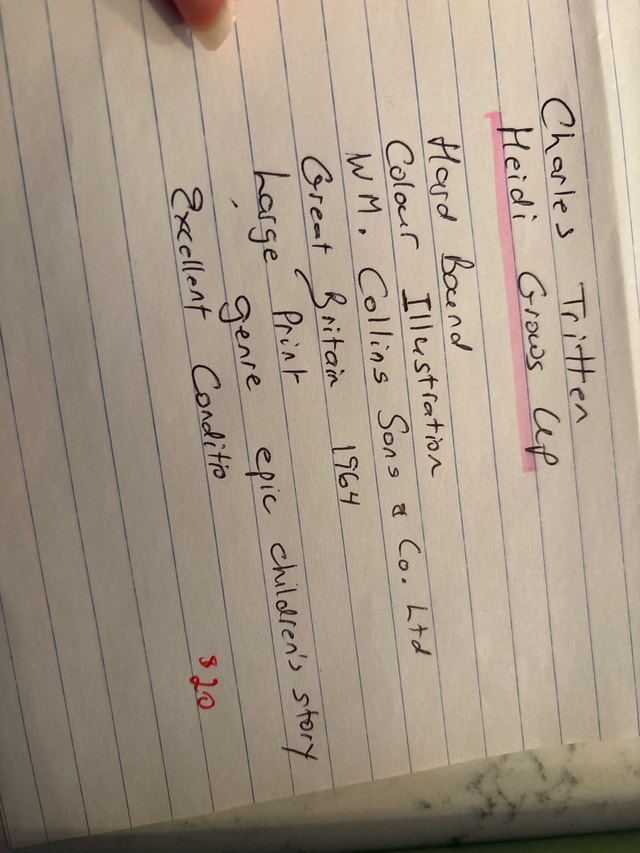 Charles Tritten
Heidi Grows Up
Hard Bound
Colour Illustration
WM. Collins Sons & Co. Ltd
Great Britain 1964
Large Print
genre epic children's story
Excellent Conditio
$20